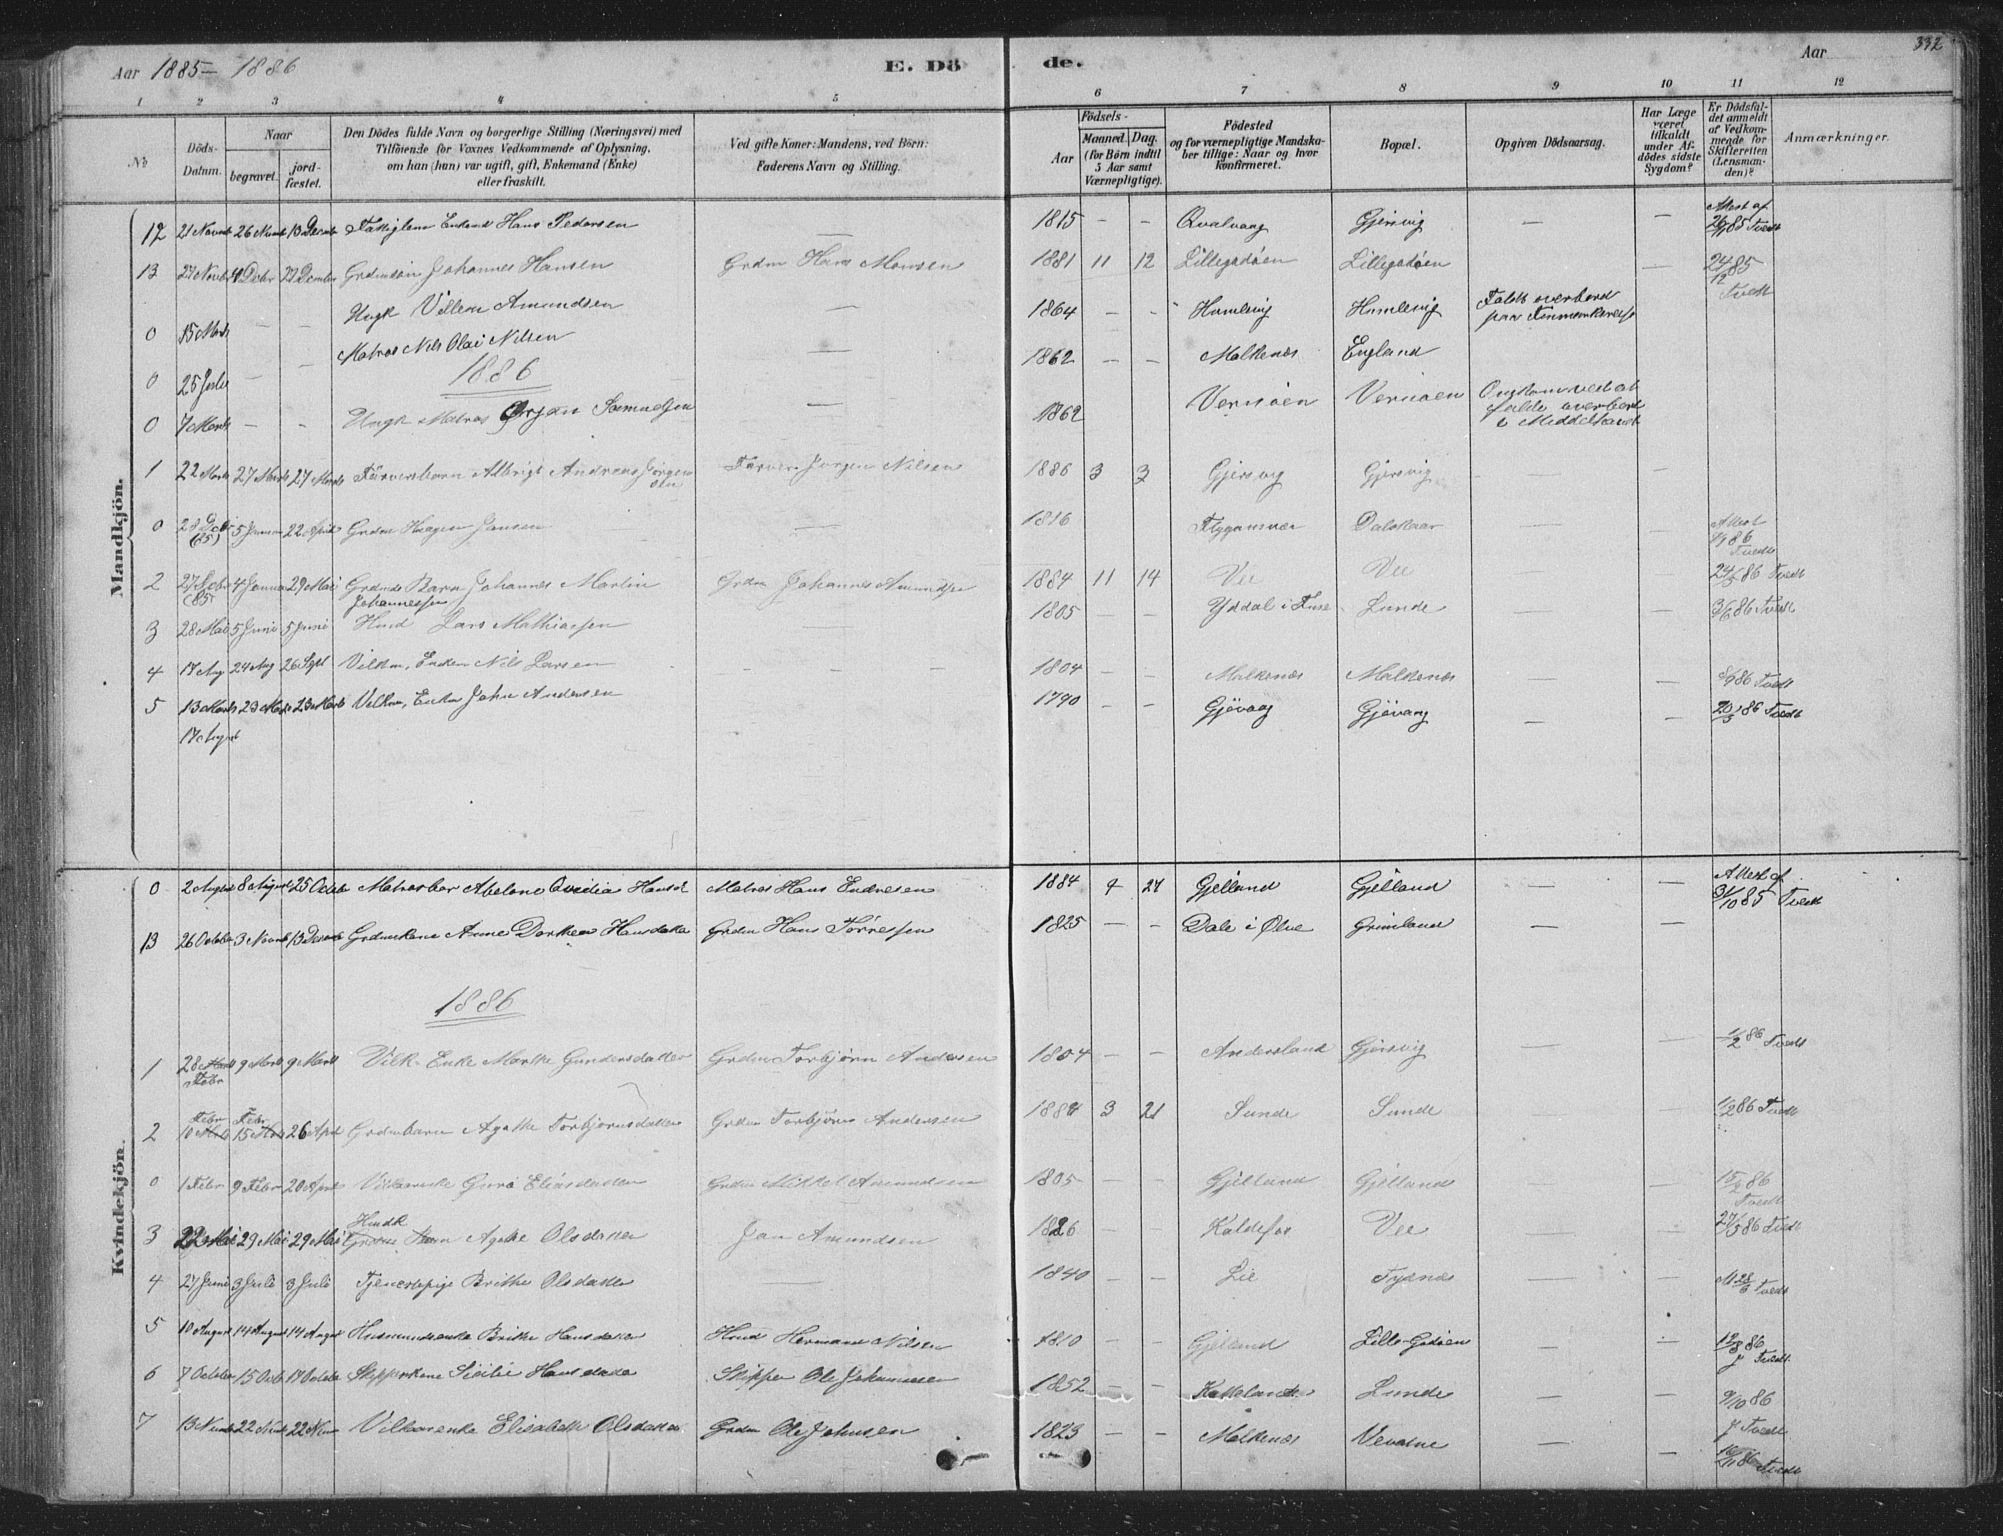 Aar 1885–1886 E. Dö
de. Aar 332
1 2 3 4 5 6 7 8 9 10 11 12
No
Döds-Datum.
Naar
begravet.
jord-fæstet.
Den Dödes fulde Navn og borgerlige Stilling (Næringsvei) med
Tilföiende for Voxnes Vedkommende af Oplysning,
om han (hun) var ugift, gift, Enkemand (Enke)
eller fraskilt.
Ved gifte Koner: Mandens, ved Börn:
Faderens Navn og Stilling.
Födsels-
Aar
Maaned. Dag.
(for Börn indtil
5 Aar samt
Værnepligtige).
Födested
og for værnepligtige Mandska-
ber tillige: Naar og hvor
konfirmeret.
Bopæl.
Opgiven Dödsaarsag.
Har Læge
været
tilkaldt
under Af-
dödes sidste
Sygdom?
Er Dödsfal-
det anmeldt
af Vedkom-
mende for
Skifteretten
(Lensman-
den)?
Anmærkninger.
Mandkjön.
12 21 Novb 26 Novb 13 Decemb Enkem Hans Pedersen — 1815 – – Qvalvaag Gjersvig — — Attest af 85 Tvedt
13 27 Novbr 4 Decbr 22 December Grdmsön Johannes Hansen Grdm Hans Monsen 1881 11 12 Lillegodöen Lillegodöen — 24/12 85 Tvedt
0 15 Marts – – Ungk Villem Amundsen — 1864 – – Humlevig Humlevig Faldt overbord paa
0 25 Julie – – Matros Nils Olai Nilsen — 1862 – – Malkenæs England
1886
0 7 Marts – – Ungk Matros Örjan Samuelsen — 1862 Vernöen Vernöen Omkom ved at falde overbord i Middelhavet
1 22 Marts 27 Marts 27 Marts Albrigt Andreas Jörgensen Jörgen Nilsen 1886 3 3 Gjersvig Gjersvig – –
0 28 Dcb (85) 5 Januar 22 April Grdm Haagen Jansen — 1816 Flygansvær Dalskaar — — Attest 86 Tvedt
2 27 Decbr (85 4 Januar 29 Mai Grdmds Barn Johannes Martin Johannessen Grdm Johannes Amundsen 1884 11 14 Vee Vee — — 86 Tvedt
3 28 Mai 5 Juni 5 Juni Husmd Lars Mathiassen — 1805 – – Yddal i Fuse Lunde — — 3/6 86 Tvedt
4 17 Aug 24 Aug 26 Sept Vilkm. Enkem Nils Larsen – – – 1804 – – Malkenæs Malkenæs — — 86 Tvedt
5 13 Marts 23 Marts 23 Marts Vilkm, Enkm John Andersen 1790 – – Gjövaag Gjövaag — — 20/3 86 Tvedt
17 August
Kvindekjön.
0 2 August 8 August 25 October Matrosbar Abelone Hansd Matros Hans Endresen 1884 4 27 Gjelland Gjelland — — Attest af 31/10 85 Tvedt
13 26 October 3 Novmb 13 Decemb Grdmkone Anne Dorthea Hansdatter Grdm Hans Törressen 1825 – – Dale i Ölve Grimland — —
1886
1 28 Marts Febr 9 Marts 9 Marts Vilk. Enke Marthe Gundersdatter Grdm Torbjörn Andersen 1804 – – Andersland Gjersvig — — 1/2 86 Tvedt
2 Febr 10 Marts Febr 15 Marts 26 April Grdmbarn Agathe Torbjörnsdatter Grdm Torbjörn Andersen 1884 3 21 Sunde Sunde — — 1/2 86 Tvedt
0 1 Febr 9 Febr 20 April Vilkaarenke Guro Eliasdatter Grdm Mikkel Amundsen 1805 – – Gjelland Gjelland — — 15/2 86 Tvedt
3 22 Mai 29 Mai 29 Mai Husmk Barn Agathe Olsdatter Jan Amundsen 1826 Kaldefos Vee — — 27/5 86 Tvedt
4 27 Juni 3 Juli 3 Juli Tjenestepige Brithe Olsdatter — 1840 – – Lie Tysnæs — — 28/6 Tvedt
5 10 August 14 August 14 August Husmandsenke Brithe Hansdatter Husmd Hermand Nilsen 1810 – – Gjelland Lille-Godöen — — 12/8 86 J Tvedt
6 7 October 15 Octb 17 October Skipperkone Sicilie Hansdatter Skipper Ole Johannesen 1852 – – Lunde — — 9/10 86 J Tvedt
7 13 Novmb 22 Novb 22 Novm Vilkaarenke Elisabeth Olsdatter Grdm Ole Johnsen 1823 – – Malkenæs — — 16/11 86 Tvedt